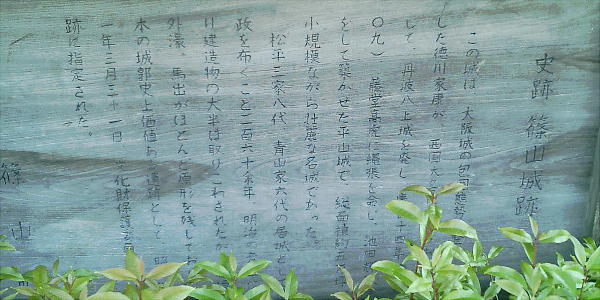 史跡 篠山城跡
この城は 大阪城の
した徳川家康が 西国大
して、丹波八上城を廃し 十四年
〇九) 藤堂高虎に縄張を命じ 池田
をして築かせた平山城で、総面積約
小規模ながら壮麗な名城であった。
松平三家八代 青山家六代の居城と
政を布くこと二百六十余年、明治
り建造物の大半は取りこわされたが
外濠 馬出がほとんど原形を残してお
本の城郭史上価値ある遺跡として 昭
一年三月三十一日 文化財保護
跡に指定された。
篠山